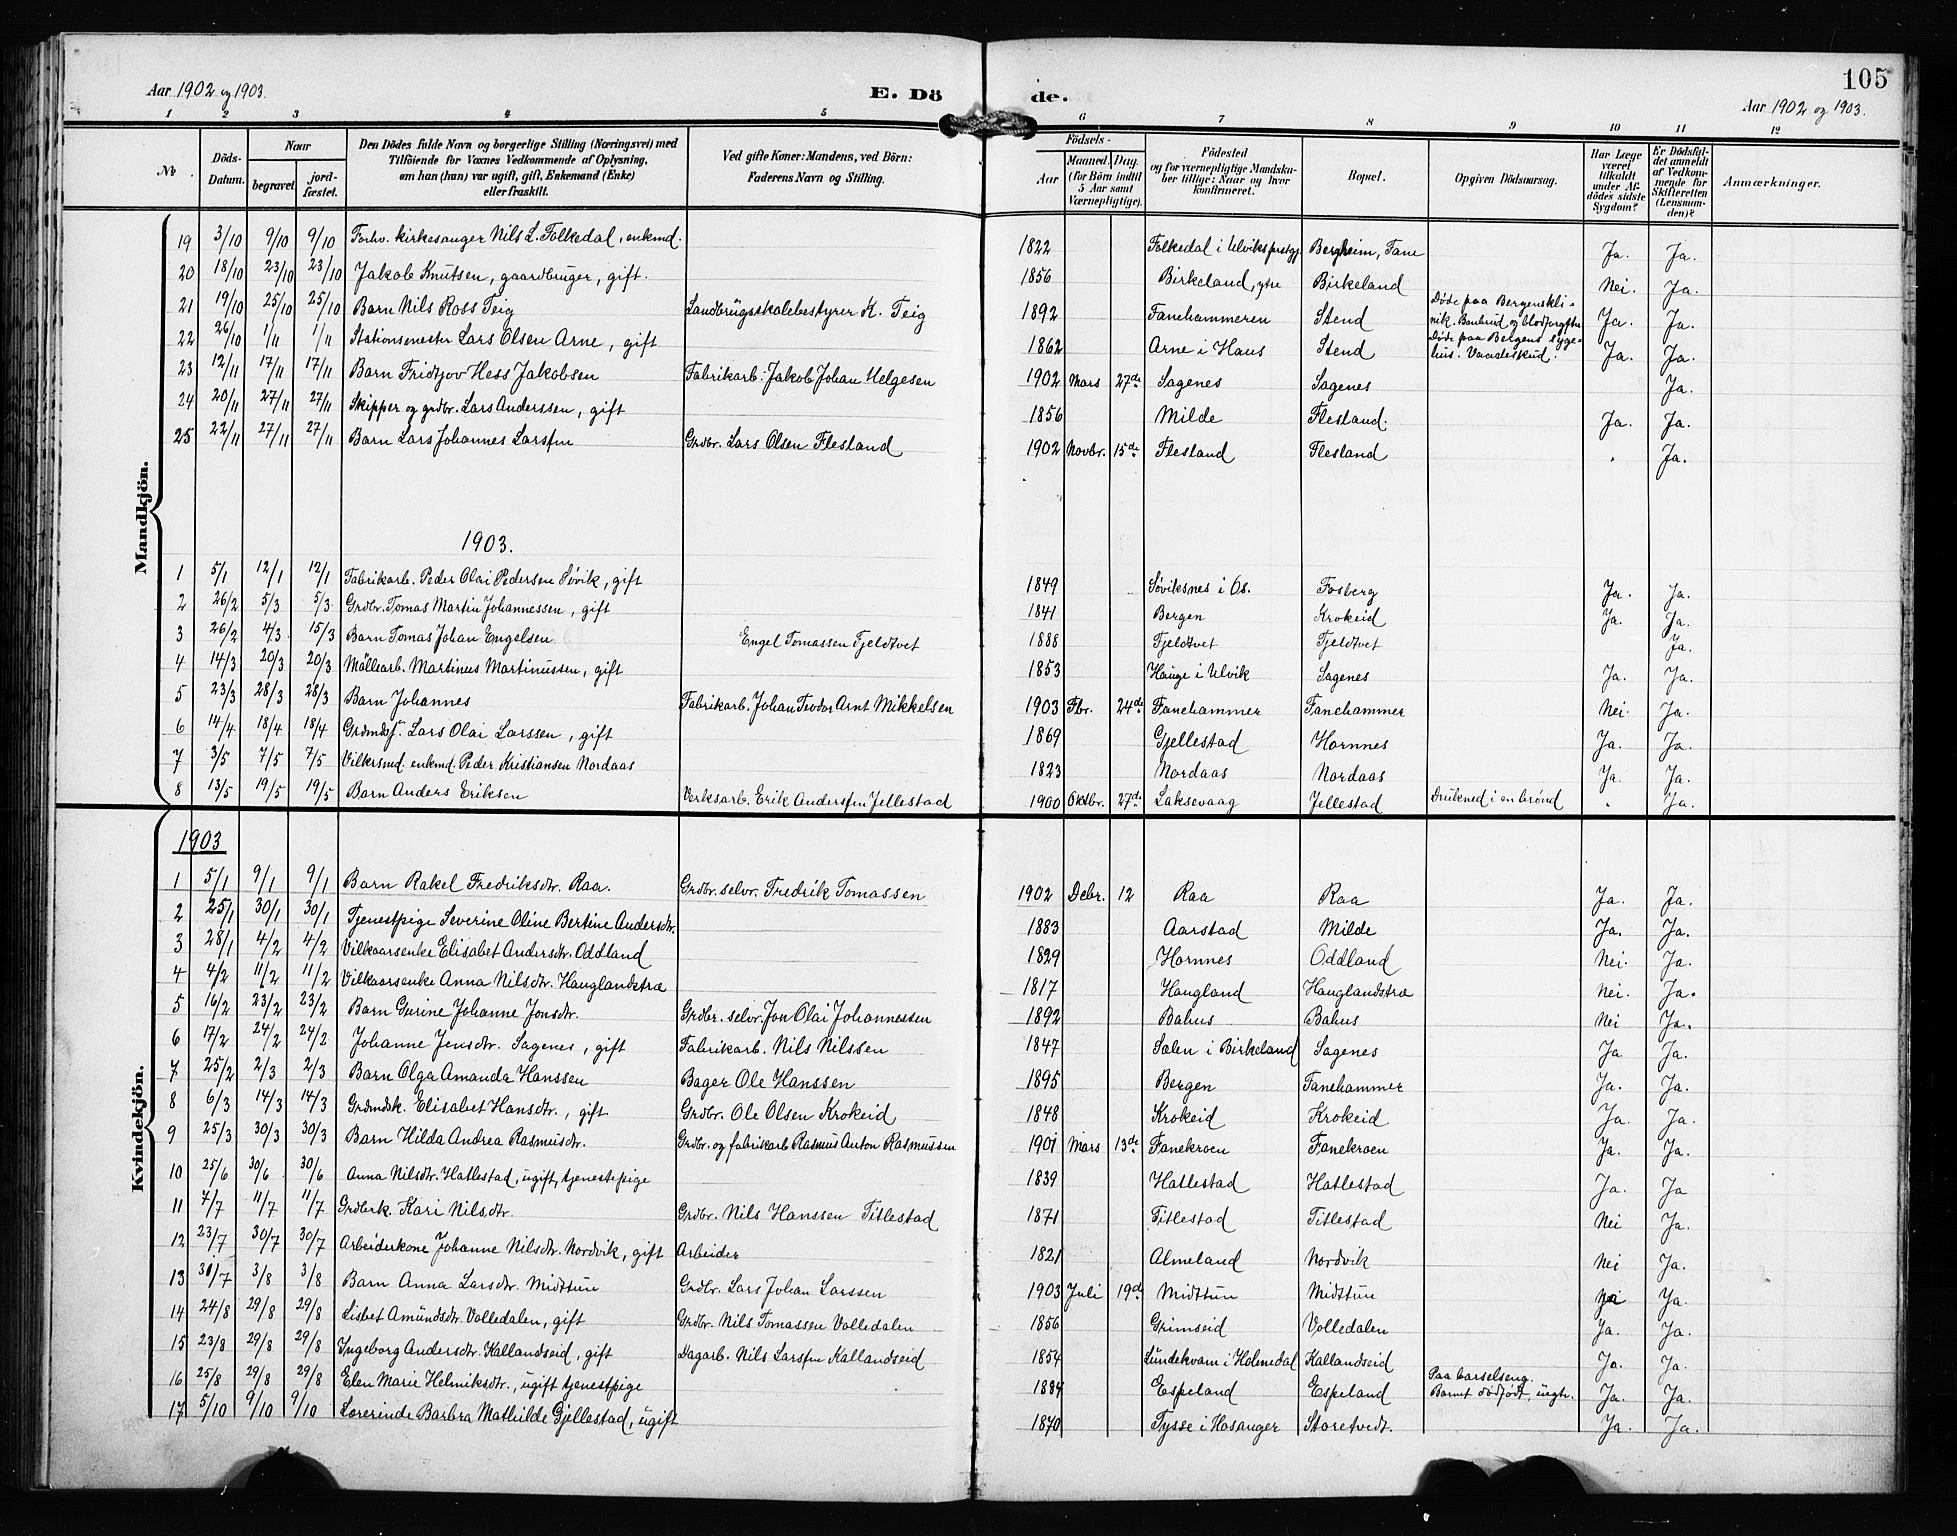 Aar 1902 og 1903.
E. Dö
de.
105
Aar 1902 og 1903.
1 2 3 4 5 6 7 8 9 10 11 12
No
Döds-Datum.
Naar
begravet.
jord-fæstet.
Den Dödes fulde Navn og borgerlige Stilling (Næringsvei) med
Tilföiende for Voxnes Vedkommende af Oplysning,
om han (hun) var ugift, gift, Enkemand (Enke)
eller fraskilt.
Ved gifte Koner: Mandens, ved Börn:
Faderens Navn og Stilling.
Födsels-
Aar
Maaned. Dag.
(for Börn indtil
5 Aar samt
Værnepligtige).
Födested
og for værnepligtige Mandskaber tillige: Naar og hvor
konfirmeret.
Bopæl.
Opgiven Dödsaarsag.
Har Læge
været
tilkaldt
under Afdödes sidste
Sygdom?
Er Dödsfaldet anmeldt
af Vedkommende for
Skifteretten
(Lensmanden)?
Anmærkninger.
Mandkjön.
19 3/10 9/10 9/10 Forhv. kirkesanger Nils L. Folkedal, enkmd. 1822 Folkedal i Ulviks prstgj. Bergheim, Fane Ja. Ja.
20 18/10 23/10 23/10 Jakob Knutsen, gaardbruger, gift. 1856 Birkeland, ytre Birkeland Nei. Ja.
21 19/10 25/10 25/10 Barn Nils Ross Teig Landbrugsskolebestyrer K. Teig 1892 Fanehammeren Stend Døde paa Bergens klinik. Benbrud og blodforgiftn Ja. Ja.
22 26/10 1/11 1/11 Stationsmester Lars Olsen Arne, gift 1862 Arne i Haus Stend Døde paa Bergens sygehus. Vaadeskud. Ja. Ja.
23 12/11 17/11 17/11 Barn Fridtjov Hess Jakobsen Fabrikarb: Jakob Johan Helgesen 1902 Mars 27de Sagenes Sagenes Ja.
24 20/11 27/11 27/11 Skipper og grdbr. Lars Anderssen, gift 1856 Milde Flesland. Ja. Ja.
25 22/11 27/11 27/11 Barn Lars Johannes Larssen Grdbr. Lars Olsen Flesland 1902 Novbr. 15de Flesland Flesland Ja.
1903.
1 5/1 12/1 12/1 Fabrikarb. Peder Olai Pedersen Søvik, gift 1849 Søviksnes i Os. Fosberg Ja. Ja.
2 26/2 5/3 5/3 Grdbr. Tomas Martin Johannessen, gift 1841 Bergen Krokeid Ja. Ja.
3 26/2 4/3 15/3 Barn Tomas Johan Engelsen Engel Tomassen Fjeldtvet 1888 Fjeldtvet Fjeldtvet Ja.
4 14/3 20/3 20/3 Møllearb. Martinus Martinussen, gift 1853 Hauge i Ulvik Sagenes Ja. Ja.
5 23/3 28/3 28/3 Barn Johannes Fabrikarb. Johan Teodor Arnt Mikkelsen 1903 Fbr. 24de Fanehammer Fanehammer Nei. Ja.
6 14/4 18/4 18/4 Grdmdsf. Lars Olai Larssen, gift 1869 Gjellestad Hornnes Ja. Ja.
7 3/5 7/5 7/5 Vilkrsmd. enkmd. Peder Kristiansen Nordaas 1823 Nordaas Nordaas Ja. Ja.
8 13/5 19/5 19/5 Barn Anders Eriksen Verksarb. Erik Anderssen Jellestad 1900 Oktbr. 27de Laksevaag Jellestad Drukned i en brønd Ja.
Kvindekjön.
1903
1 5/1 9/1 9/1 Barn Rakel Fredriksdtr. Raa. Grdbr. selvr. Fredrik Tomassen 1902 Debr. 12 Raa Raa Ja. Ja.
2 25/1 30/1 30/1 Tjenestpige Severine Oline Bertine Andersdtr. 1883 Aarstad Milde Ja. Ja.
3 28/1 4/2 4/2 Vilkaarsenke Elisabet Andersdtr. Oddland 1829 Hornnes Oddland Nei. Ja.
4 4/2 11/2 11/2 Vilkaarsenke Anna Nilsdtr. Hauglandstræ 1817 Haugland Hauglandstræ Nei. Ja.
5 16/2 23/2 23/2 Barn Gurine Johanne Jonsdtr. Grdbr. selvr. Jon Olai Johannessen 1892 Bahus Bahus Nei Ja.
6 17/2 24/2 24/2 Johanne Jensdtr. Sagenes, gift Fabrikarb. Nils Nilssen 1847 Sælen i Birkeland Sagenes Ja Ja.
7 25/2 2/3 2/3 Barn Olga Amanda Hanssen Bager Ole Hanssen 1895 Bergen Fanehammer Ja. Ja.
8 6/3 14/3 14/3 Grdmdsk. Elisabet Hansdtr., gift Grdbr. Ole Olsen Krokeid 1848 Krokeid Krokeid Ja. Ja.
9 25/3 30/3 30/3 Barn Hilda Andrea Rasmusdtr. Grdbr. og fabrikarb Rasmus Anton Rasmussen 1901 Mars 13de Fanekroen Fanekroen Ja. Ja.
10 25/6 30/6 30/6 Anna Nilsdtr. Hatlestad, ugift, tjenestepige 1839 Hatlestad Hatlestad Ja. Ja
11 7/7 11/7 11/7 Grdbrk. Kari Nilsdtr. Grdbr. Nils Hanssen Titlestad 1871 Titlestad Titlestad Nei Ja.
12 23/7 30/7 30/7 Arbeiderkone Johanne Nilsdtr. Nordvik, gift Arbeider 1821 Almeland Nordvik Nei Ja.
13 30/7 3/8 3/8 Barn Anna Larsdtr. Midttun Grdbr. Lars Johan Larssen 1903 Juli 19de Midttun Midttun Nei Ja.
14 24/8 29/8 29/8 Lisbet Amundsdtr. Volledalen, gift Grdbr. Nils Tomassen Volledalen 1856 Grimseid Volledalen Ja. Ja.
15 23/8 29/8 29/8 Ingeborg Andersdtr. Kallandseid, gift Dagarb. Nils Larssen Kallandseid 1854 Lundekvam i Holmedal Kallandseid Ja. Ja.
16 25/8 29/8 29/8 Elen Marie Helmiksdtr., ugift tjenestpige 1884 Espeland Espeland Paa barselseng. Barnet dødfødt, uegte. Ja. Ja.
17 5/10 9/10 9/10 Lærerinde Barbra Mathilde Gjellestad, ugift 1870 Tysse i Hosanger Storetvedt. Ja. Ja.